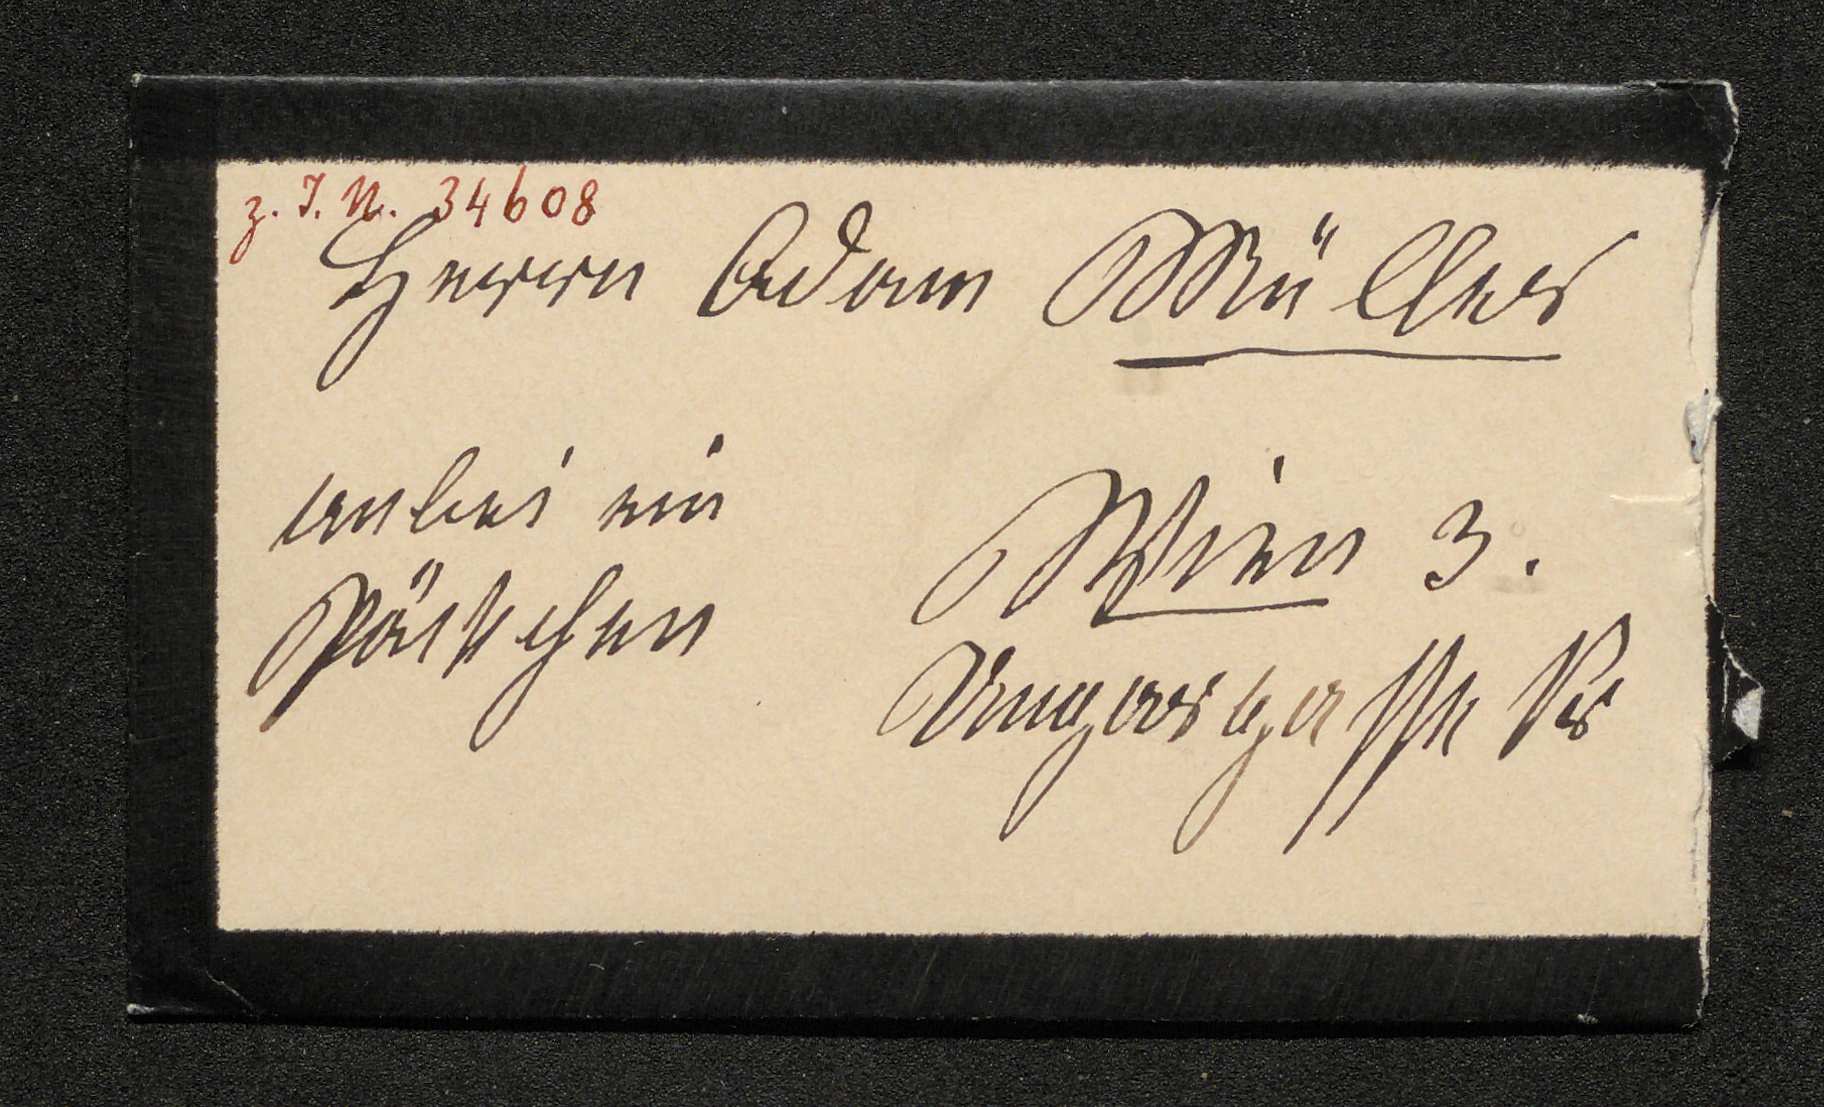 z. I. N. 34608
Herrn Adam Müller
anbei ein
Päckchen
Wien 3.
Ungargasse